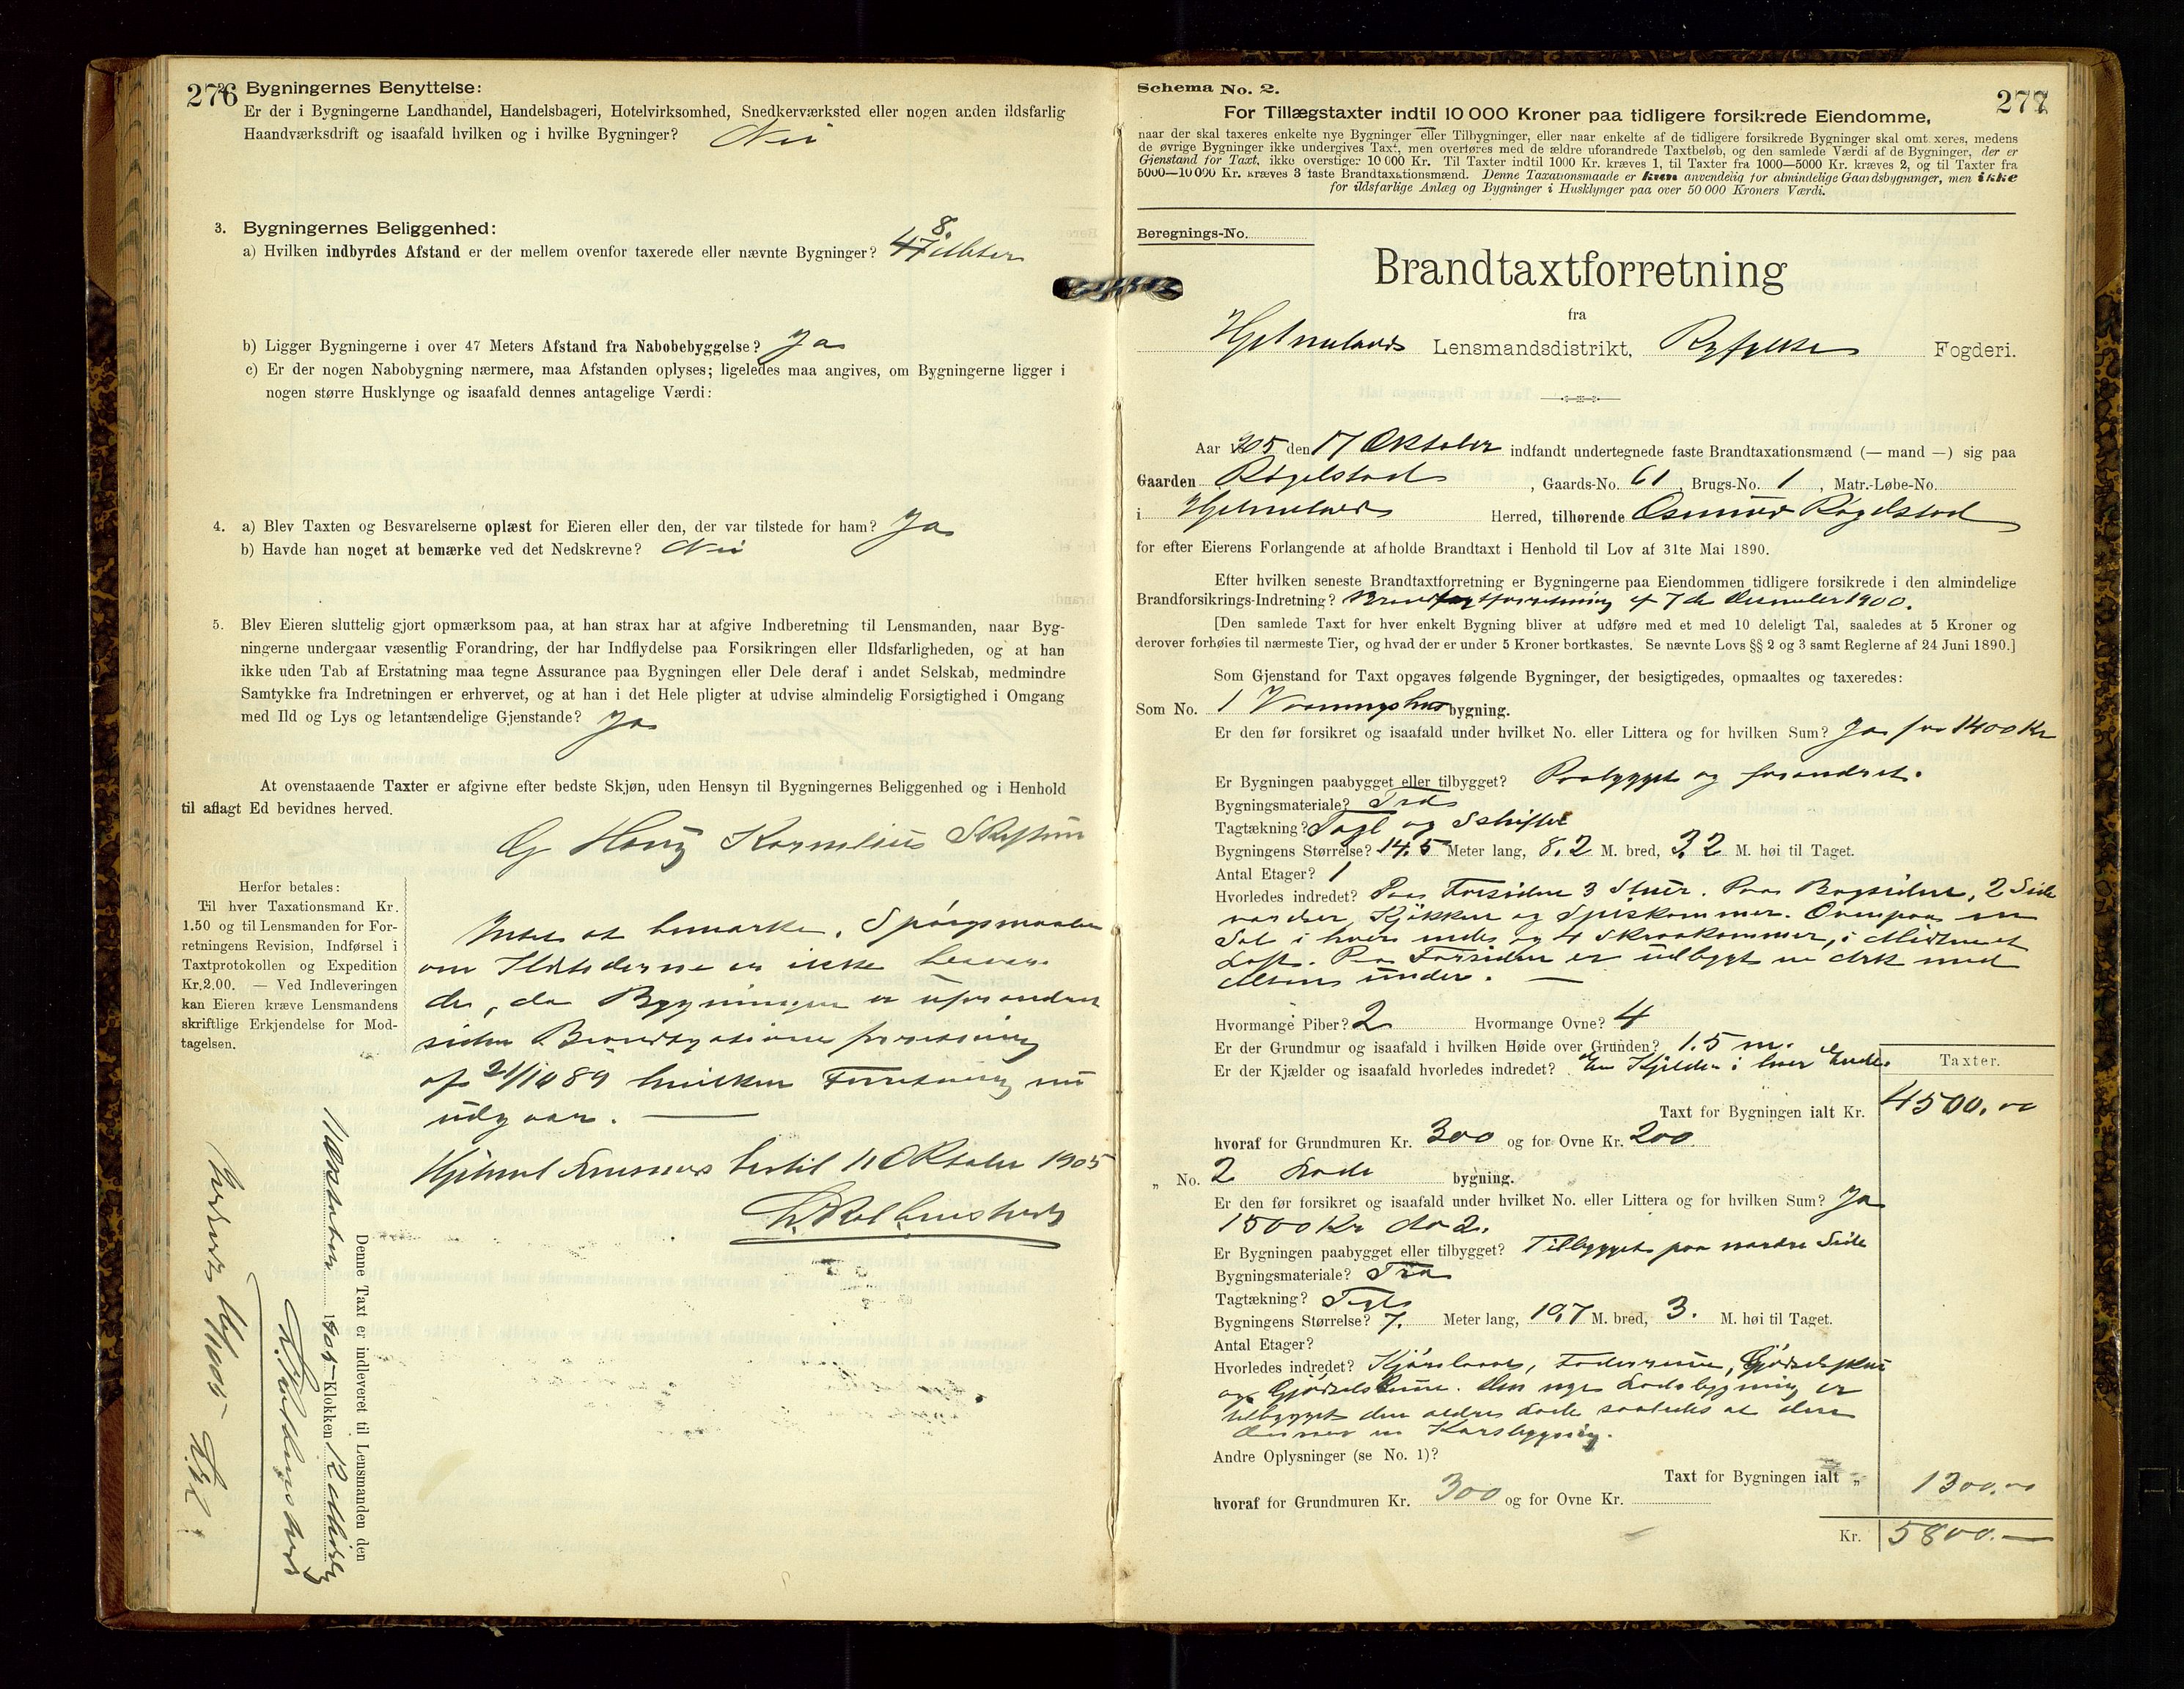 276
2. Bygningernes Benyttelse:
Er der i Bygningerne Landhandel, Handelsbageri, Hotelvirksomhed, Snedkerværksted eller nogen anden ildsfarlig
Haandværksdrift og isaafald hvilken og i hvilke Bygninger? Nei
3. Bygningernes Beliggenhed:
a) Hvilken indbyrdes Afstand er der mellem ovenfor taxerede eller nævnte Bygninger? 8. Meter
b) Ligger Bygningerne i over 47 Meters Afstand fra Nabobebyggelse? Ja
c) Er der nogen Nabobygning nærmere, maa Afstanden oplyses; ligeledes maa angives, om Bygningerne ligger i
nogen større Husklynge og isaafald dennes antagelige Værdi:
4. a) Blev Taxten og Besvarelserne oplæst for Eieren eller den, der var tilstede for ham? Ja
b) Havde han noget at bemærke ved det Nedskrevne? Nei
5. Blev Eieren sluttelig gjort opmærksom paa, at han strax har at afgive Indberetning til Lensmanden, naar Byg-
ningerne undergaar væsentlig Forandring, der har Indflydelse paa Forsikringen eller Ildsfarligheden, og at han
ikke uden Tab af Erstatning maa tegne Assurance paa Bygningen eller Dele deraf i andet Selskab, medmindre
Samtykke fra Indretningen er erhvervet, og at han i det Hele pligter at udvise almindelig Forsigtighed i Omgang
med Ild og Lys og letantændelige Gjenstande? Ja
At ovenstaaende Taxter er afgivne efter bedste Skjøn, uden Hensyn til Bygningernes Beliggenhed og i Henhold
til aflagt Ed bevidnes herved.
G Houg Kornelius
Herfor betales:
Til hver Taxationsmand Kr.
1.50 og til Lensmanden for For-
retningens Revision, Indførsel i
Taxtprotokollen og Expedition
Kr.2.00. — Ved Indleveringen
kan Eieren kræve Lensmandens
skriftlige Erkjendelse for Mod-
tagelsen.
at bemærke. Spørgsmaalene
om Ildstederne er ikke besvare
de, da Bygningen er uforandret
siden Brandtaxationsforretning
af 21/10 89 hvilken Forretning nu
udgaar.
Hjelmel 11 Oktober 1905
Denne Taxt er indleveret til Lensmanden den
11 Oktober 1905 Klokken 12 Middag
277
Schema No. 2.
For Tillægstaxter indtil 10 000 Kroner paa tidligere forsikrede Eiendomme,
naar der skal taxeres enkelte nye Bygninger eller Tilbygninger, eller naar enkelte af de tidligere forsikrede Bygninger skal omtaxeres, medens
de øvrige Bygninger ikke undergives Taxt, men overføres med de ældre uforandrede Taxtbeløb, og den samlede Værdi af de Bygninger, der er
Gjenstand for Taxt, ikke overstiger 10 000 Kr. Til Taxter indtil 1000 Kr. kræves 1, til Taxter fra 1000—5000 Kr. kræves 2, og til Taxter fra
5000—10 000 Kr. kræves 3 faste Brandtaxationsmænd. Denne Taxationsmaade er kun anvendelig for almindelige Gaardsbygninger, men ikke
for ildsfarlige Anlæg og Bygninger i Husklynger paa over 50 000 Kroners Værdi.
Beregnings-No.
Brandtaxtforretning
fra
Hjelmelands Lensmandsdistrikt, Ryfylke Fogderi.
Aar 1905 den 17 Oktober indfandt undertegnede faste Brandtaxationsmænd (— mand —) sig paa
Gaarden Røgelstad, Gaards-No. 61, Brugs-No. 1, Matr.-Løbe-No.
i Hjelmeland Herred, tilhørende Osmund Røgelstad
for efter Eierens Forlangende at afholde Brandtaxt i Henhold til Lov af 31te Mai 1890.
Efter hvilken seneste Brandtaxtforretning er Bygningerne paa Eiendommen tidligere forsikrede i den almindelige
Brandforsikrings-Indretning? Brandtaxtforretning af 7de December 1900.
[Den samlede Taxt for hver enkelt Bygning bliver at udføre med et med 10 deleligt Tal, saaledes at 5 Kroner og
derover forhøies til nærmeste Tier, og hvad der er under 5 Kroner bortkastes. Se nævnte Lovs §§ 2 og 3 samt Reglerne af 24 Juni 1890.]
Som Gjenstand for Taxt opgaves følgende Bygninger, der besigtigedes, opmaaltes og taxeredes:
Som No. 1 Vaaningshus bygning.
Er den før forsikret og isaafald under hvilket No. eller Littera og for hvilken Sum? Ja for 1400 Kr
Er Bygningen paabygget eller tilbygget? Paabygget og forandret.
Bygningsmateriale? Træ
Tagtækning? Tagl og Schifter
Bygningens Størrelse? 14.5 Meter lang, 8.2 M. bred, 3.2 M. høi til Taget.
Antal Etager? 1
Hvorledes indredet? Paa Forsiden 3 Stuer. Paa Bagsiden, 2 Side
værelser, Kjøkken og Spiskammer. Ovenpaa en
Sal i hver ende og 4 Skraakammer, i Midten et
Loft. Paa Forsiden er udbygt en Ark med
under.
Hvormange Piber? 2 Hvormange Ovne? 4
Er der Grundmur og isaafald i hvilken Høide over Grunden? 1.5 m.
Er der Kjælder og isaafald hvorledes indredet? En Kjelder i hver Ende.
Taxter.
Taxt for Bygningen ialt Kr. 4500.00
hvoraf for Grundmuren Kr. 300 og for Ovne Kr. 200
„ No. 2 Lade bygning.
Er den før forsikret og isaafald under hvilket No. eller Littera og for hvilken Sum? Ja
1500 Kr No 2.
Er Bygningen paabygget eller tilbygget? Tilbygget paa nordre Side
Bygningsmateriale? Træ
Tagtækning? Tagl
Bygningens Størrelse? 7. Meter lang, 10,7 M. bred, 3. M. høi til Taget.
Antal Etager?
Hvorledes indredet? Kjørelaave, Foderrum, Gjødselskur
og Gjødselrum. Den nye Ladebygning er
tilbygget den ældre Lade saaledes at den
danner en Korsbygning.
Andre Oplysninger (se No. 1)?
Taxt for Bygningen ialt „ 1300.00
hvoraf for Grundmuren Kr. 300 og for Ovne Kr.
Kr. 5800.—